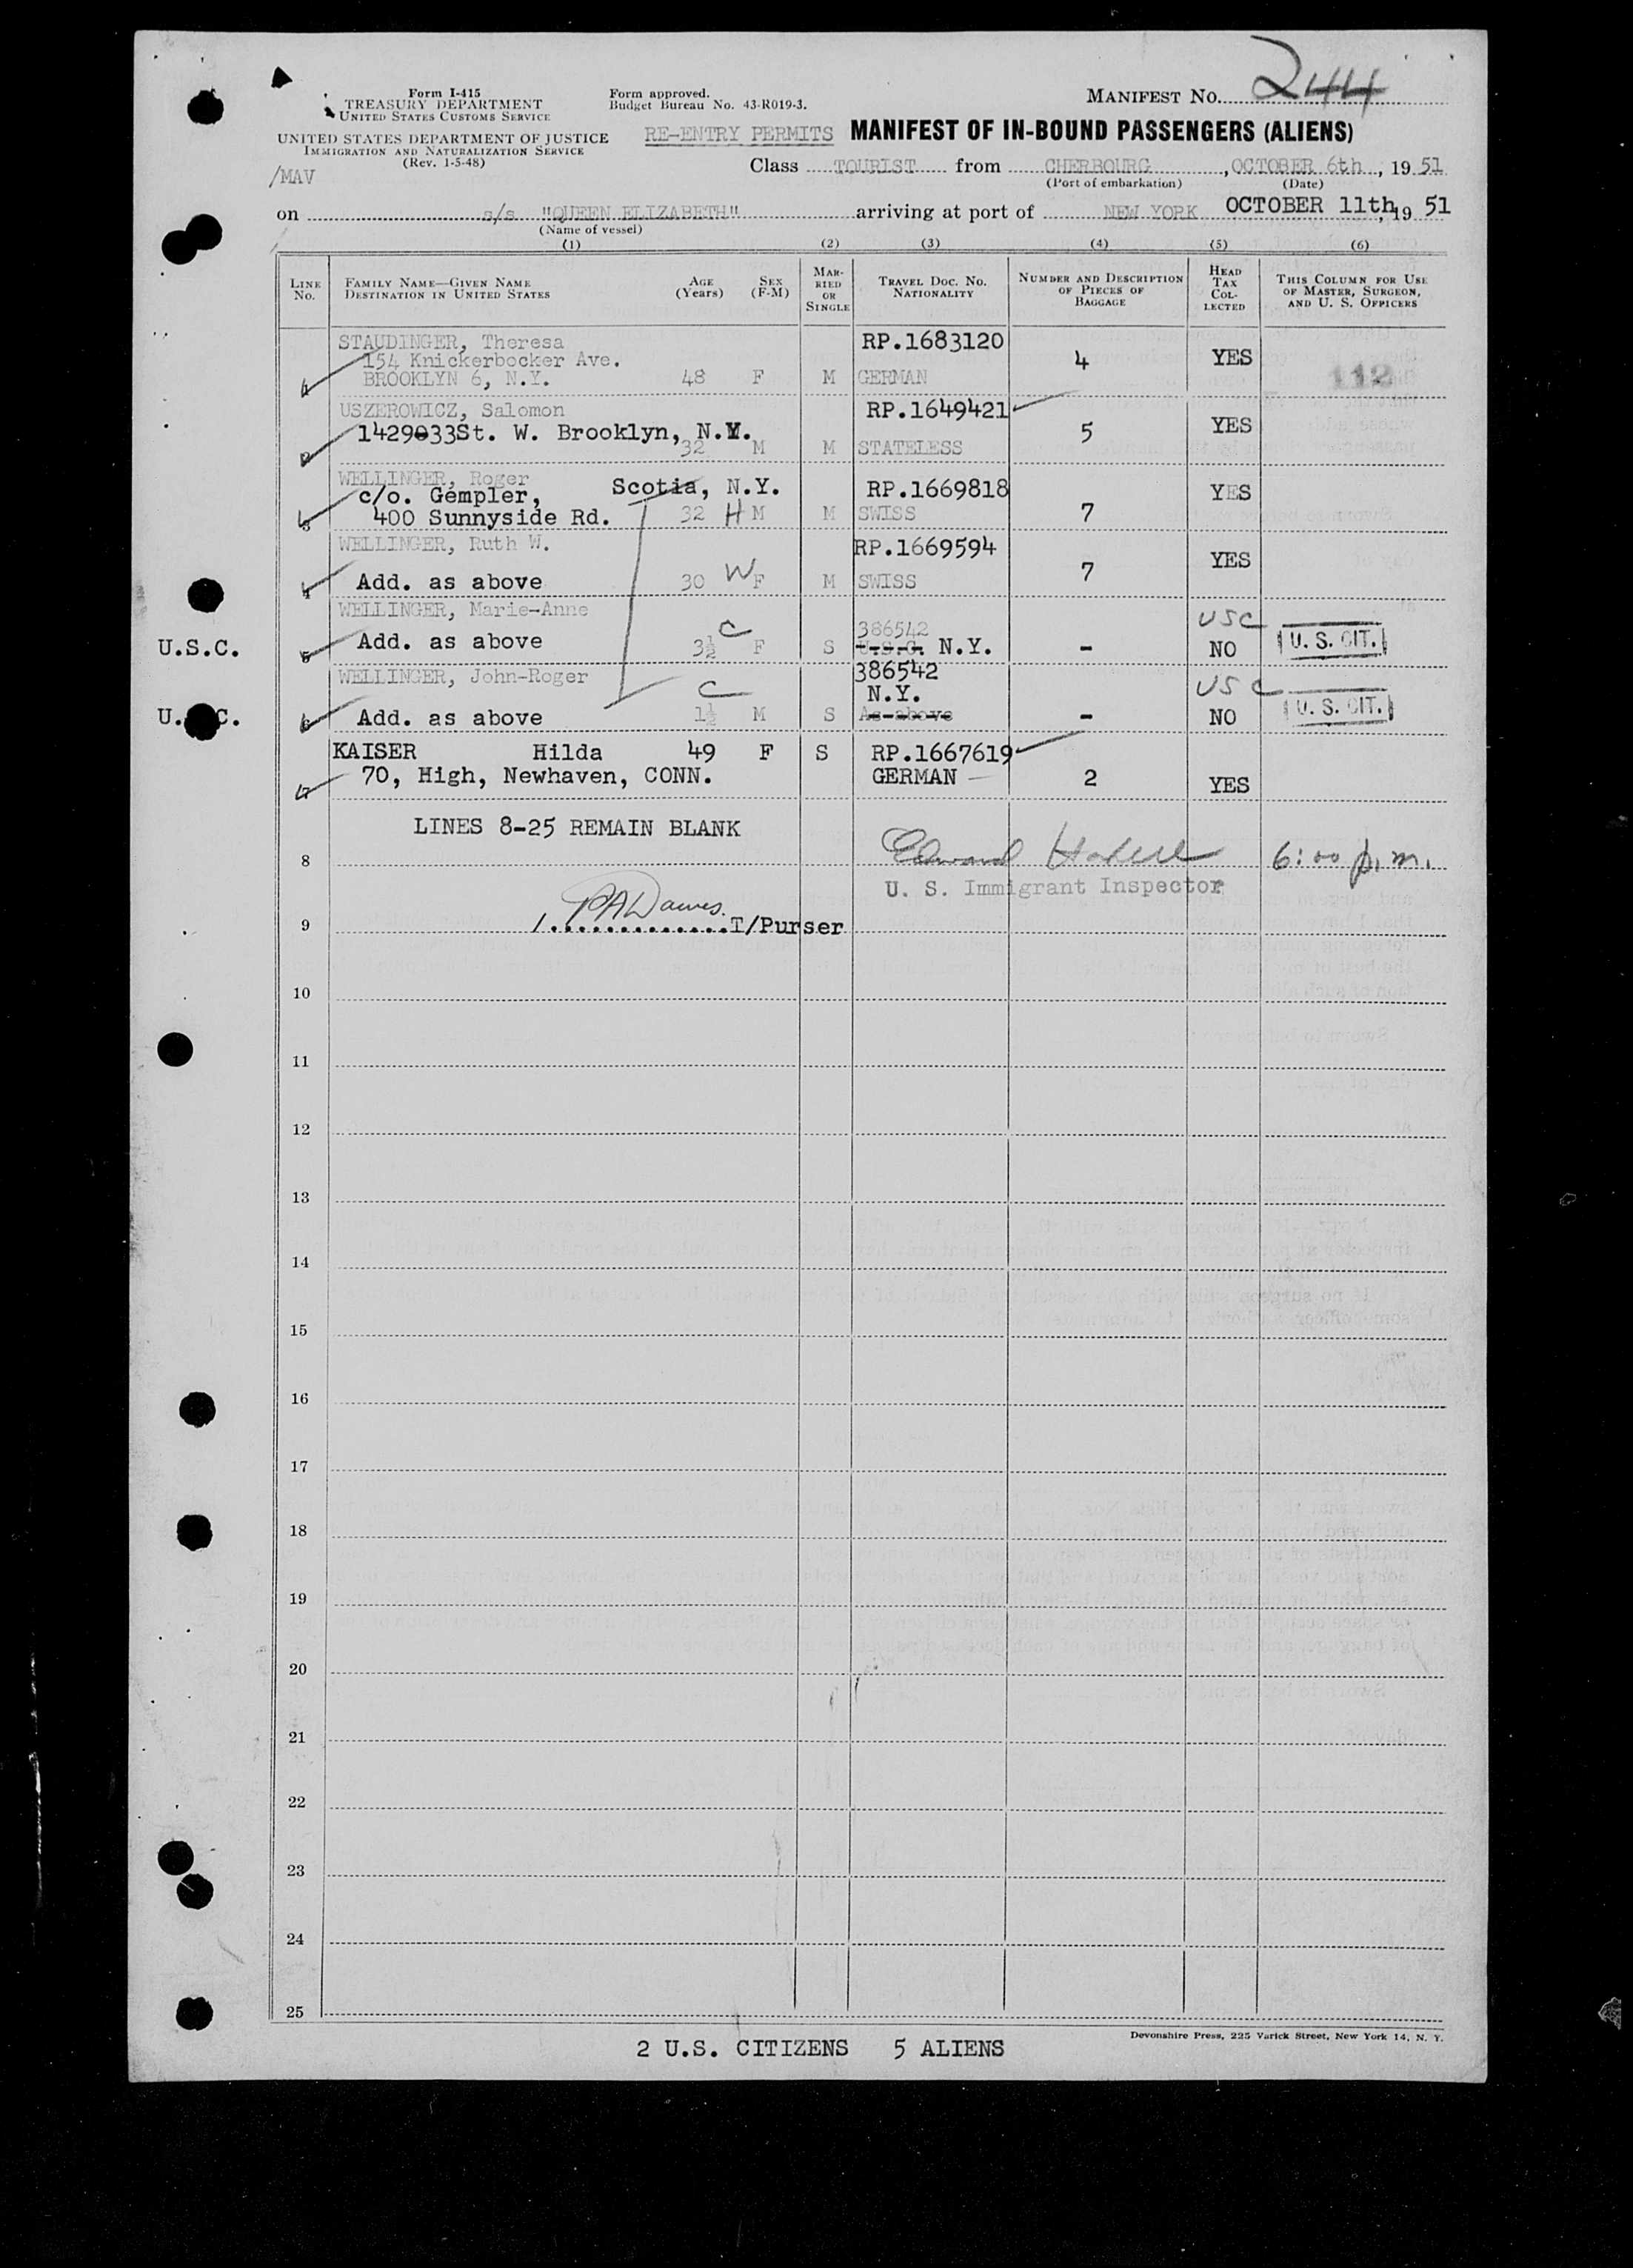 MANIFEST NO. 244
Form I-415
TREASURY DEPARTMENT
UNITED STATES CUSTOMS SERVICE
Form approved.
Budget Bureau No. 43-R019-3.
UNITED STATES DEPARTMENT OF JUSTICE
IMMIGRATION AND NATURALIZATION SERVICE
(Rev. 1-5-48)
RE-ENTRY PERMITS MANIFEST OF IN-BOUND PASSENGERS (ALIENS)
/MAV
Class TOURIST from CHERBOURG, OCTOBER 6th, 19 51
(Port of embarkation) (Date)
on s/s "QUEEN ELIZABETH" arriving at port of NEW YORK OCTOBER 11th, 19 51
(Name of vessel)
(1) (2) (3) (4) (5) (6)
LINE No. FAMILY NAME—GIVEN NAME DESTINATION IN UNITED STATES AGE (Years) SEX (F-M) MARRIED OR SINGLE TRAVEL DOC. NO. NATIONALITY NUMBER AND DESCRIPTION OF PIECES OF BAGGAGE HEAD TAX COLLECTED THIS COLUMN FOR USE OF MASTER, SURGEON, AND U. S. OFFICERS
STAUDINGER, Theresa RP.1683120
154 Knickerbocker Ave. 4 YES
1 BROOKLYN 6, N.Y. 48 F M GERMAN 112
USZEROWICZ, Salomon RP.1649421
142933St. W. Brooklyn, N.Y. 5 YES
2 32 M M STATELESS
WELLINGER, Roger
c/o. Gempler, Scotia, N.Y. RP.1669818 YES
3 400 Sunnyside Rd. 32 H M M SWISS 7
WELLINGER, Ruth W. RP.1669594 YES
4 Add. as above 30 W F M SWISS 7
WELLINGER, Marie-Anne 386542 USC
U.S.C. 5 Add. as above 3½ C F S U.S.C. N.Y. - NO U. S. CIT.
WELLINGER, John-Roger 386542 USC
N.Y.
U.S.C. 6 Add. as above 1½ C M S As above - NO U. S. CIT.
KAISER Hilda 49 F S RP.1667619
7 70, High, Newhaven, CONN. GERMAN 2 YES
LINES 8-25 REMAIN BLANK
8 Edward 6:00 p.m.
U. S. Immigrant Inspector
9 /. PADawes. T/Purser
10
11
12
13
14
15
16
17
18
19
20
21
22
23
24
25
Devonshire Press, 225 Varick Street, New York 14, N. Y.
2 U.S. CITIZENS 5 ALIENS